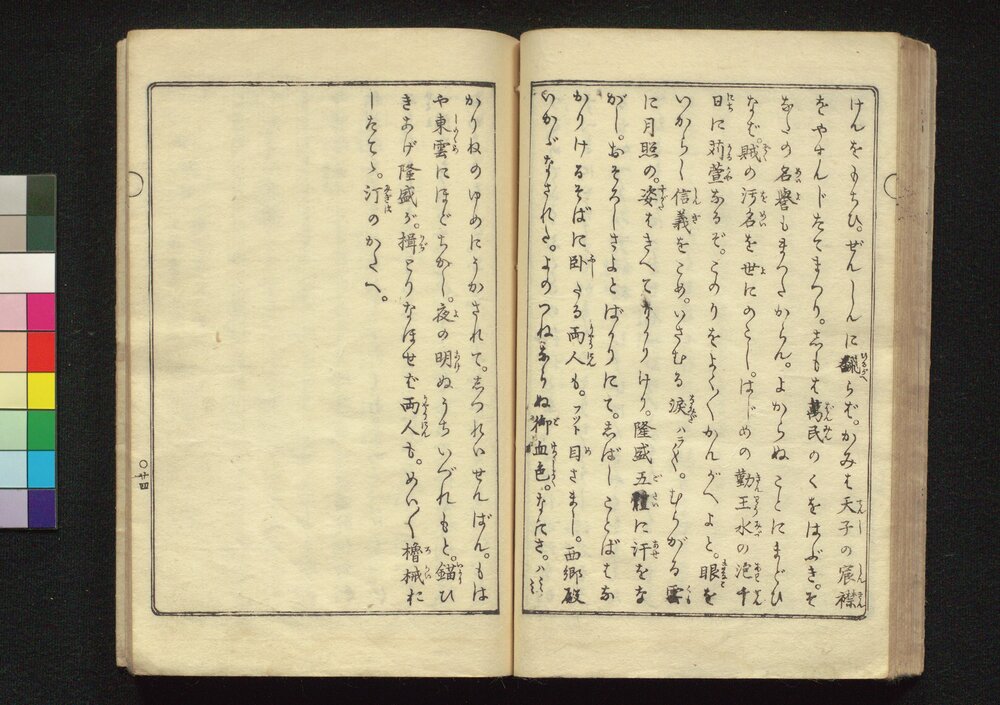 けんをもちひ。ぜんしんに飜らば。かみは天子の宸襟
をやすんじたてまつり。しもは萬民のくをはぶき。そ
なたの名譽もまつたからん。よからぬことにまどひ
なば。賊の汚名を世にのこし。はじめの勤王水の泡千
日に苅萱なるぞ。このりをよく〳〵かんがへよと。眼を
いからし信義をこめ。いさむる涙ハラ〳〵。むらがる雲
に月照の。姿はきへてなかりけり。隆盛五體に汗をな
がし。おそろしさよとばかりにて。しばしことばはな
かりけるそばに卧たる両人も。フツト目さまし。西郷殿
いかゞなされた。よのつねならぬ御血色。なにさ。ハヽヽ
かりねのゆめにうかされて。しつれいせんばん。もは
や東雲にほどちかし。夜の明ぬうちいづれもと。錨ひ
きあげ隆盛が。揖とりなほせば両人も。めい〳〵櫓械お
したてゝ。汀のかたへ。
〇廿四